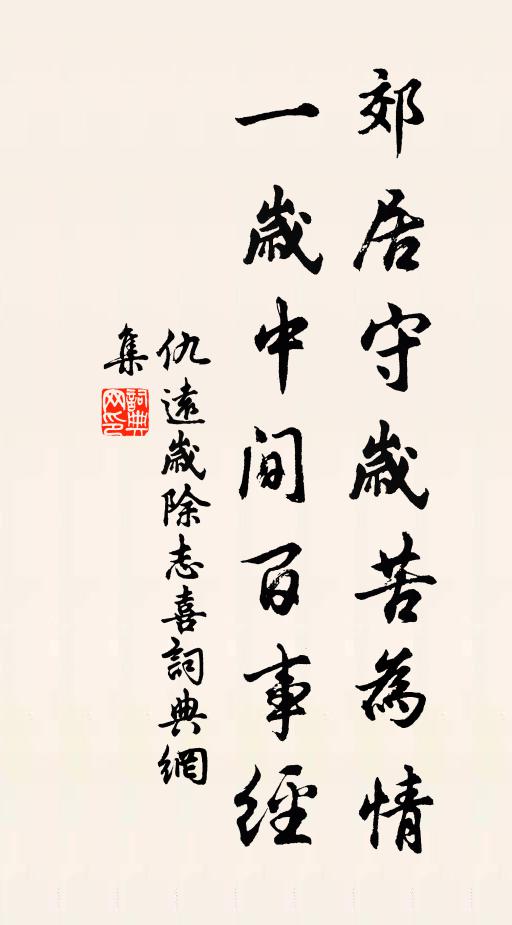 郊居守歲苦為情
一歲中間百事經
仇遠歲除志喜詞典網
集
詞典
网印